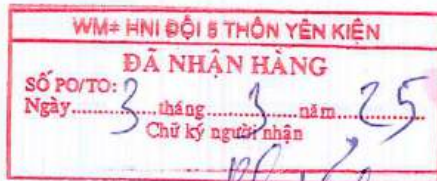 WM+ HNI ĐỘI 5 THÔN YÊN KIỆN
ĐÃ NHẬN HÀNG
SỐ PO/TO:
Ngày 3 tháng 3 năm 25
Chữ ký người nhận